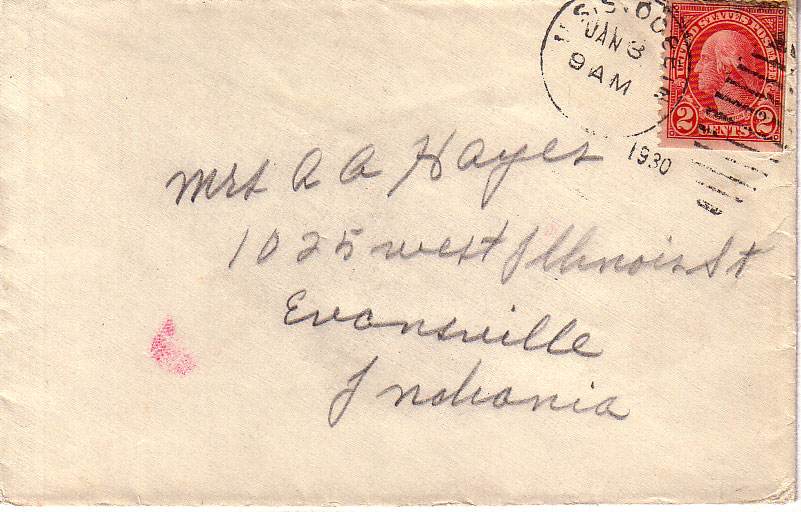 U.S.S.
JAN 3
9 AM
1930
UNITED STATES POSTAGE
2 CENTS 2
Mrs A A Hayes
1025 West Illinois St
Evansville
Indiania